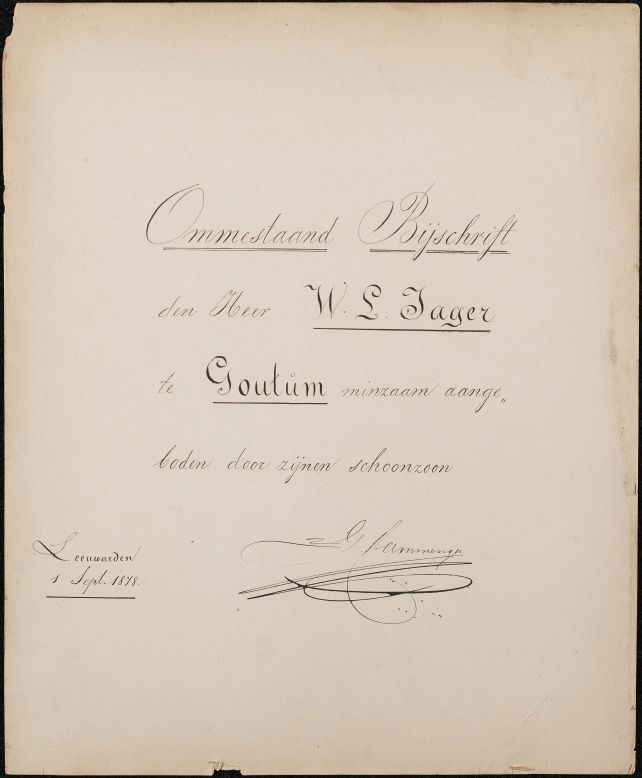 Ommestaand Bijschrift
den Heer W. L. Jager
te Goutŭm minzaam aange„
boden door zijnen schoonzoon
G. Lammenga
Leeuwarden
1 Sept. 1878.